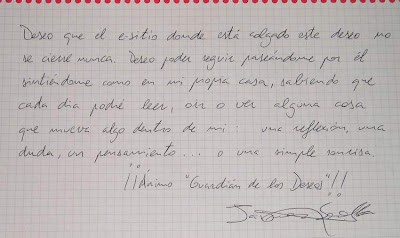 Deseo que el e-sitio donde está colgado este deseo no
se cierre nunca. Deseo poder seguir paseándome por él
sintiéndome como en mi propia casa, sabiendo que
cada día podré leer, oir o ver alguna cosa
que mueva algo dentro de mi: una reflexión, una
duda, un pensamiento... o una simple sonrisa.
¡¡Ánimo "Guardián de los Deseos"!!